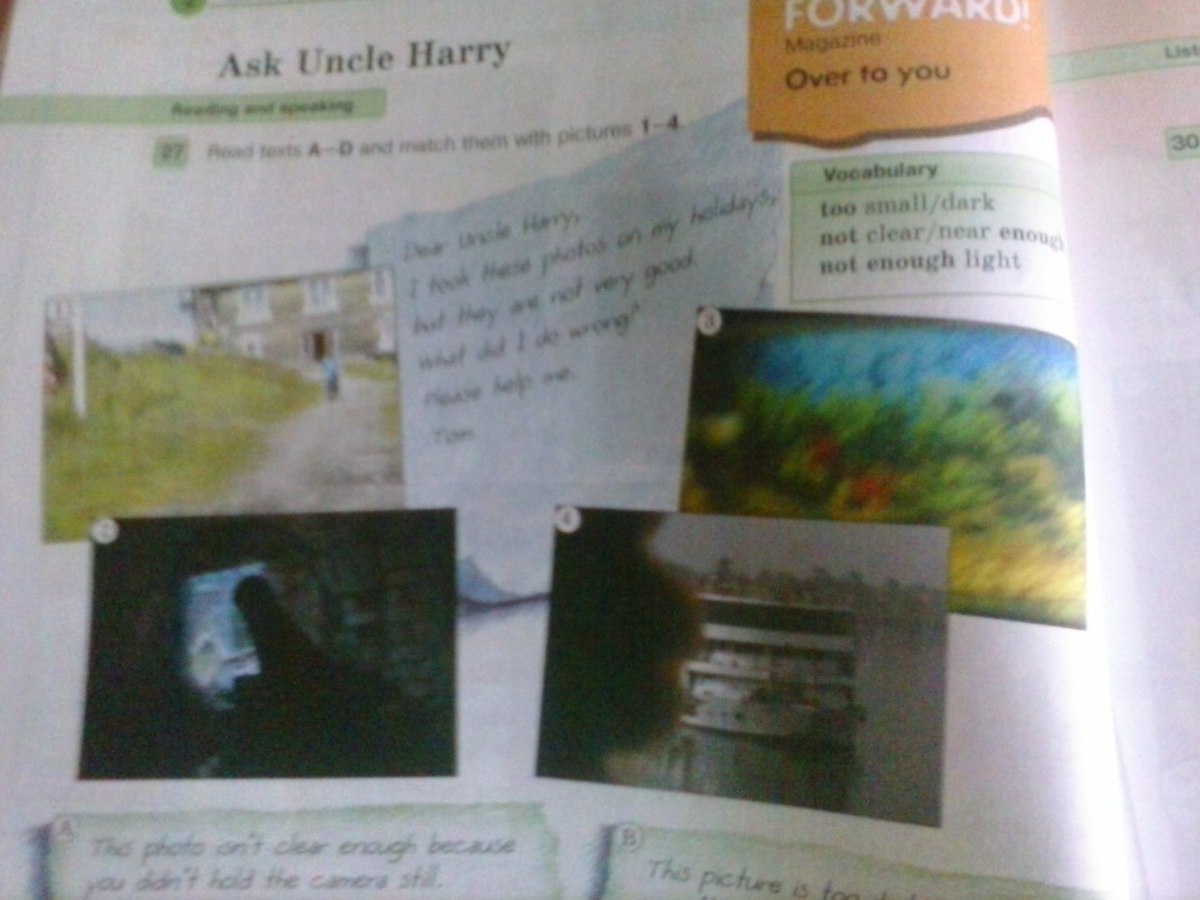 Ask Uncle Harry
FORWARD!
Magazine
Over to you
List
Reading and speaking
27 Read texts A–D and match them with pictures 1–4.
30
Vocabulary
too small/dark
not clear/near enough
not enough light
Dear Uncle Harry,
I took these photos on my holidays,
but they are not very good.
What did I do wrong?
Please help me.
Tom
1
3
2
4
A
This photo isn't clear enough because
you didn't hold the camera still.
B
This picture is too